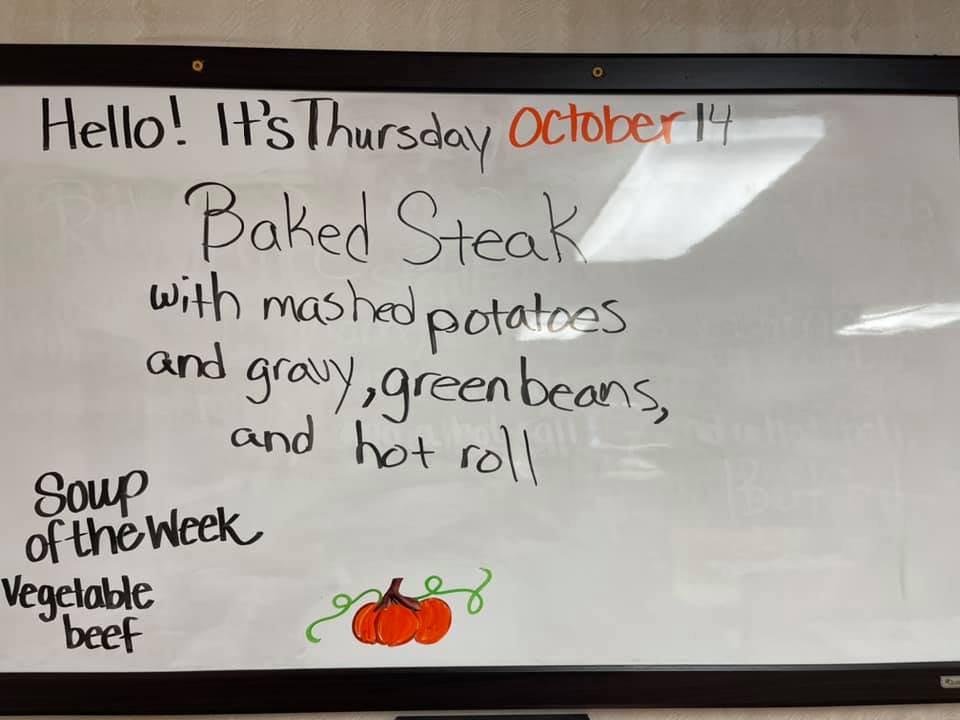 Hello! It's Thursday October 14
Baked Steak
with mashed potatoes
and gravy, green beans,
and hot roll
Soup
of the Week
Vegetable
beef